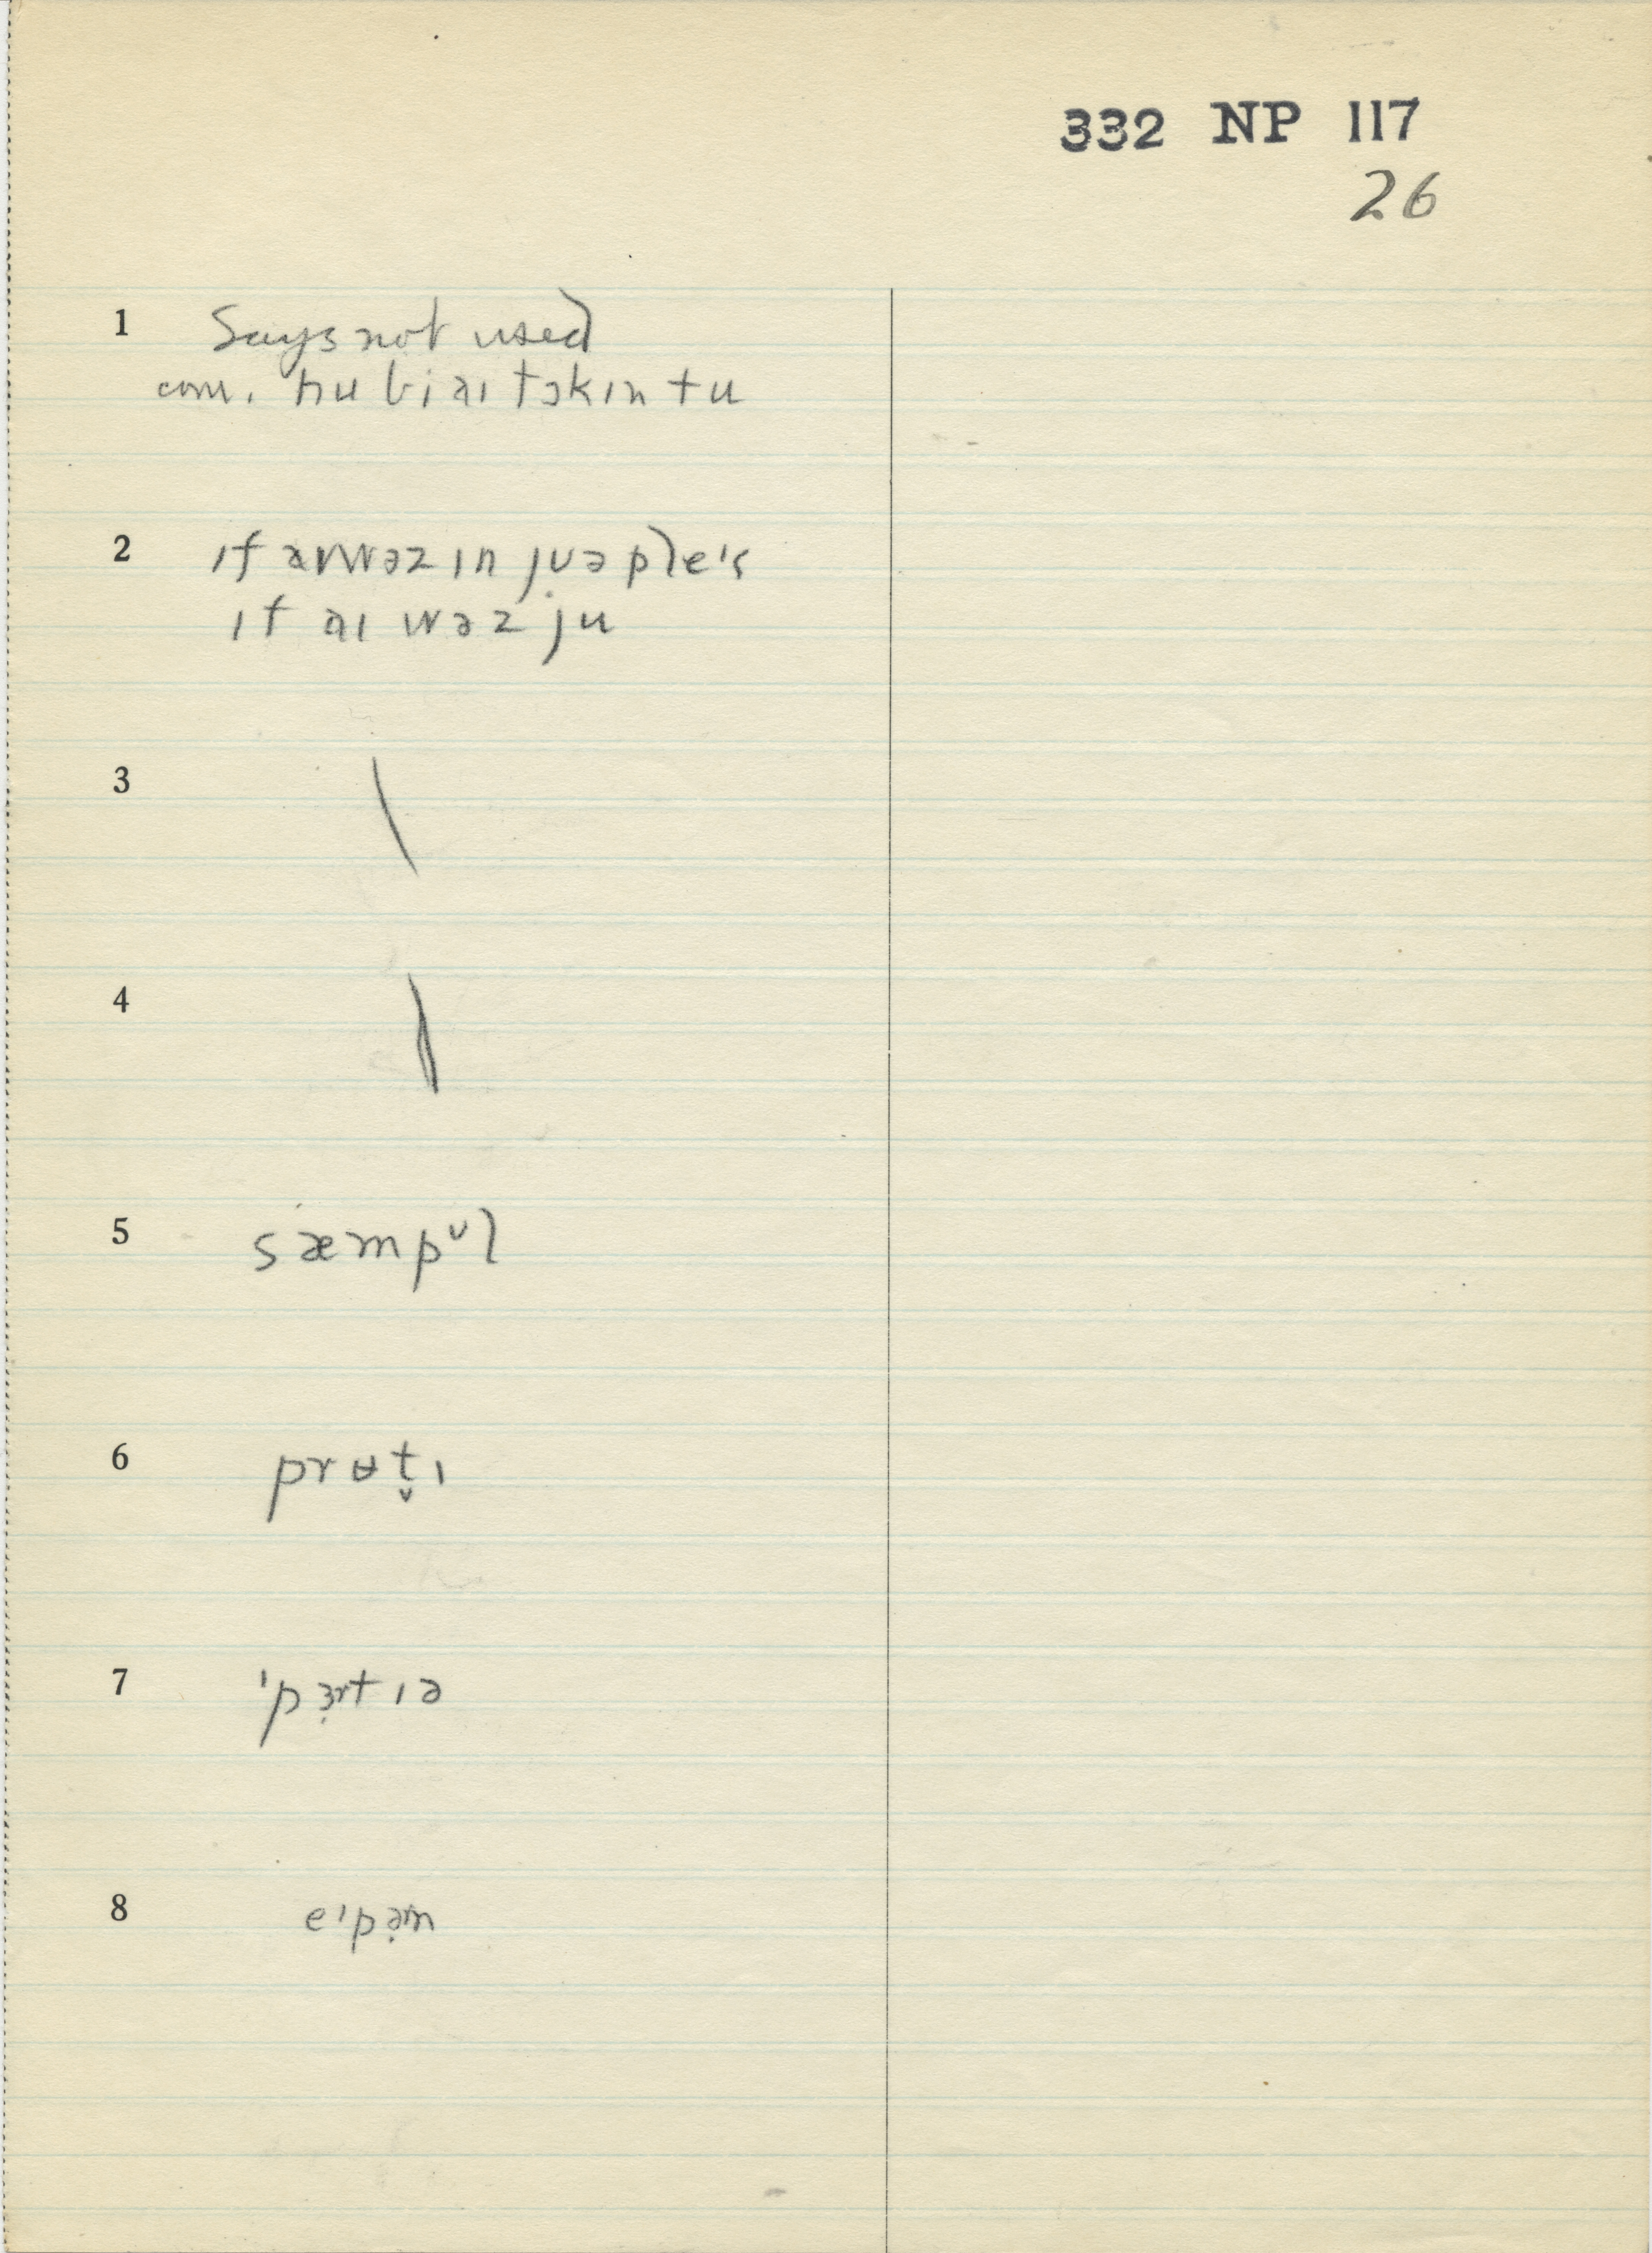 332 NP 117
26
1 Says not used
com. hu bi aɪ tɔkɪn tu
2 ɪf aɪ wəz ɪn jʊə ple's
ɪf aɪ wəz ju
3 \
4 \
5 sæmpᵛl
6 prʉt̬ɪ
7 'pɜ̣rtɪə
8 eɪpə̣rn